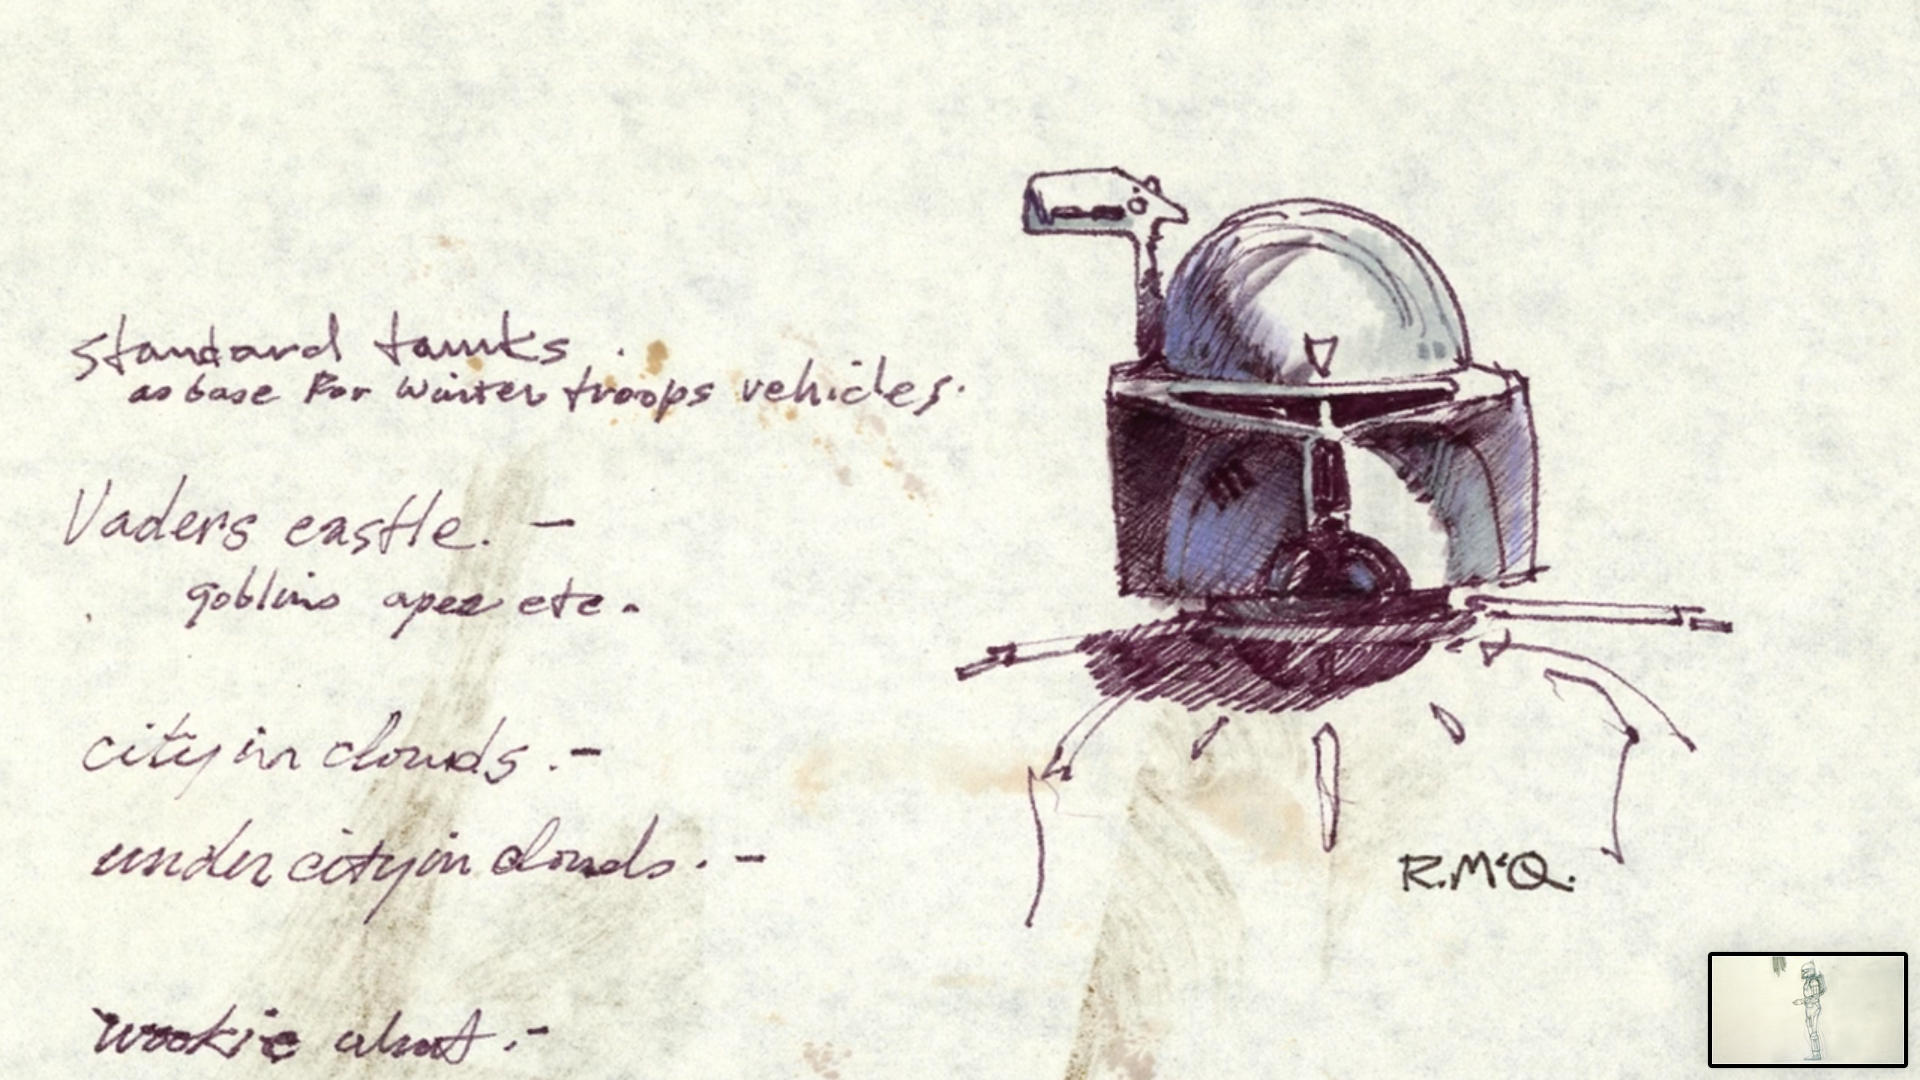 standard tanks.
as base for winter troops vehicles.
Vaders castle. -
goblins apes etc.
city in clouds. -
under city in clouds. -
wookie
R.McQ.